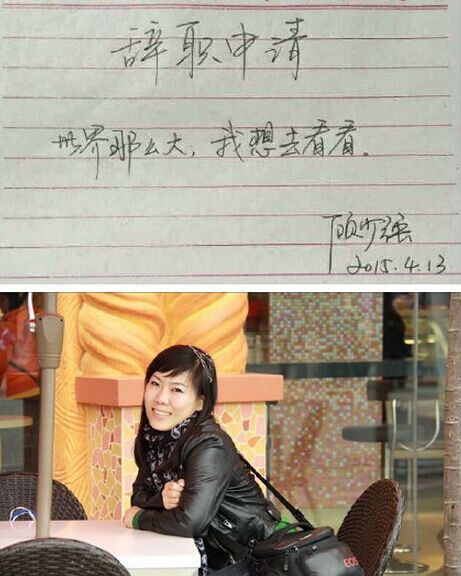 辞职申请
世界那么大，我想去看看。
顾少强
2015.4.13
EOS